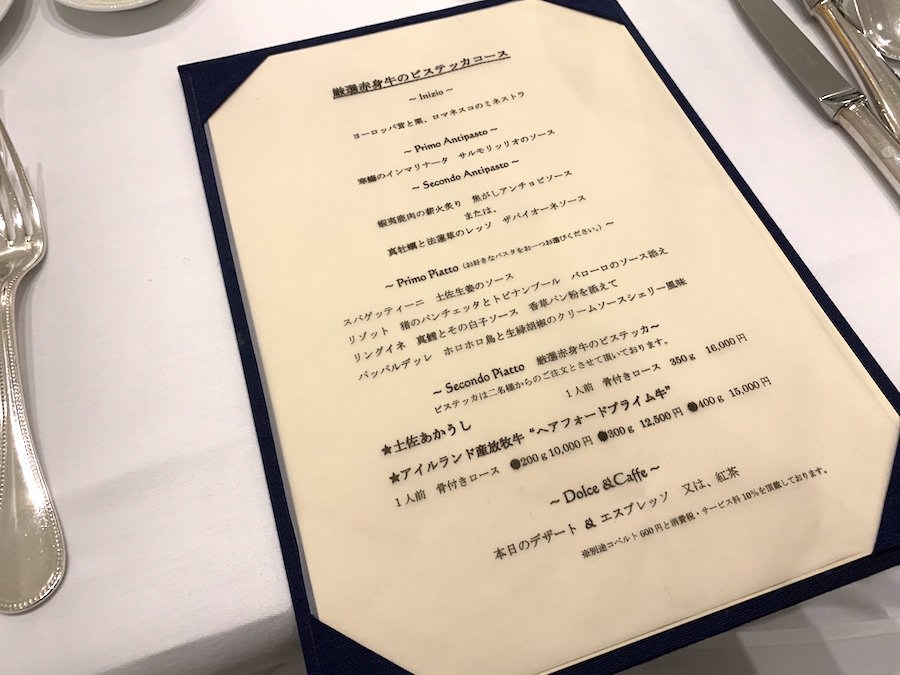 厳選赤身牛のビステッカコース
~ Inizio ~
ヨーロッパ茸と栗、ロマネスコのミネストラ
~ Primo Antipasto ~
寒鰤のインマリナータ　サルモリッリオのソース
~ Secondo Antipasto ~
蝦夷鹿肉の薪火炙り　焦がしアンチョビソース
または、
真牡蠣と法蓮草のレッソ　ザバイオーネソース
~ Primo Piatto（お好きなパスタをお一つお選びください。）~
スパゲッティーニ　土佐生姜のソース
リゾット　猪のパンチェッタとトピナンブール　バローロのソース添え
リングイネ　真鱈とその白子ソース　香草パン粉を添えて
パッパルデッレ　ホロホロ鳥と生緑胡椒のクリームソースシェリー風味
~ Secondo Piatto　厳選赤身牛のビステッカ~
ビステッカは二名様からのご注文とさせて頂いております。
★土佐あかうし　1人前　骨付きロース　350g　16,000円
★アイルランド産放牧牛 “ヘアフォードプライム牛”
1人前　骨付きロース　●200g 10,000円　●300g 12,500円　●400g 15,000円
~ Dolce &Caffe ~
本日のデザート & エスプレッソ　又は、紅茶
※別途コペルト600円と消費税・サービス料10%を頂戴しております。